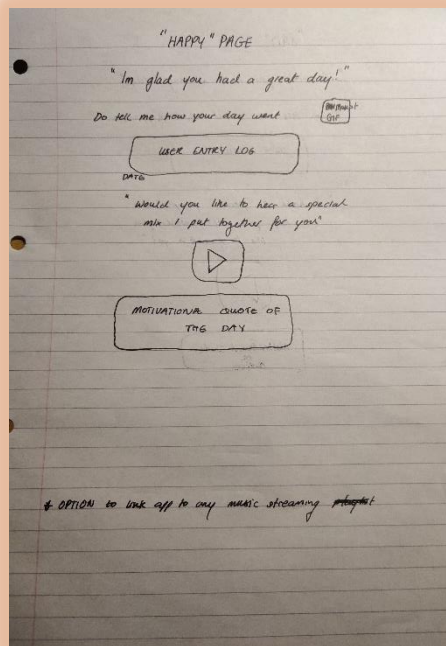 "HAPPY" PAGE
"Im glad you had a great day!"
Do tell me how your day went
GIF
USER ENTRY LOG
DATE
"Would you like to hear a special
mix I put together for you"
MOTIVATIONAL QUOTE OF
THE DAY
OPTION to link app to any music streaming